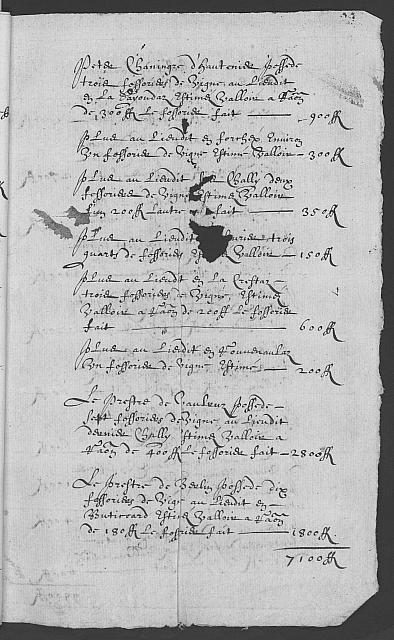 Peter Chaningre d'hautenier possede
trois fossoriers de vigne au Liendit
en La Estimé valloir a raõn
de 300ff Le fossorier fait 900ff
plus au Liendit en forchex Environ
Un fossorier de vigne Estimé valloir 300ff
plus au Liendit Vally deux
fossoriers de vigne Estimé valloir
L'un 200ff Lautre fait 350ff
plus au Liendit trois
quarts de fossorier valloir 150ff
plus au Liendit en La Crestaz
trois fossoriers de vigne, Estimez
valloir a raõn de 200ff Le fossorier
fait 600ff
plus au Liendit en
Un fossorier de vigne Estimé 200ff
Le prestre de Vaulruz possede
sept fossoriers de vigne au Liendit
dernier Vally Estimé valloir a
raõn de 400ff Le fossorier fait 2800ff
Le prestre de Berlin possede dix
fossoriers de vige au Liendit en
Estimé valloir a raõn
de 180ff Le fossorier fait 1800ff
7100ff